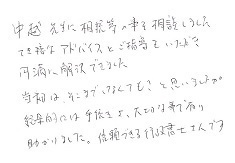 中越先生に相続等の事を相談しました
的確なアドバイスとご指導をいただき
円満に解決できました
当初は、そこまでしなくても？と思いましたが
結果的には手続きよ、大切な事であり
助かりました。信頼できる行政書士さんです